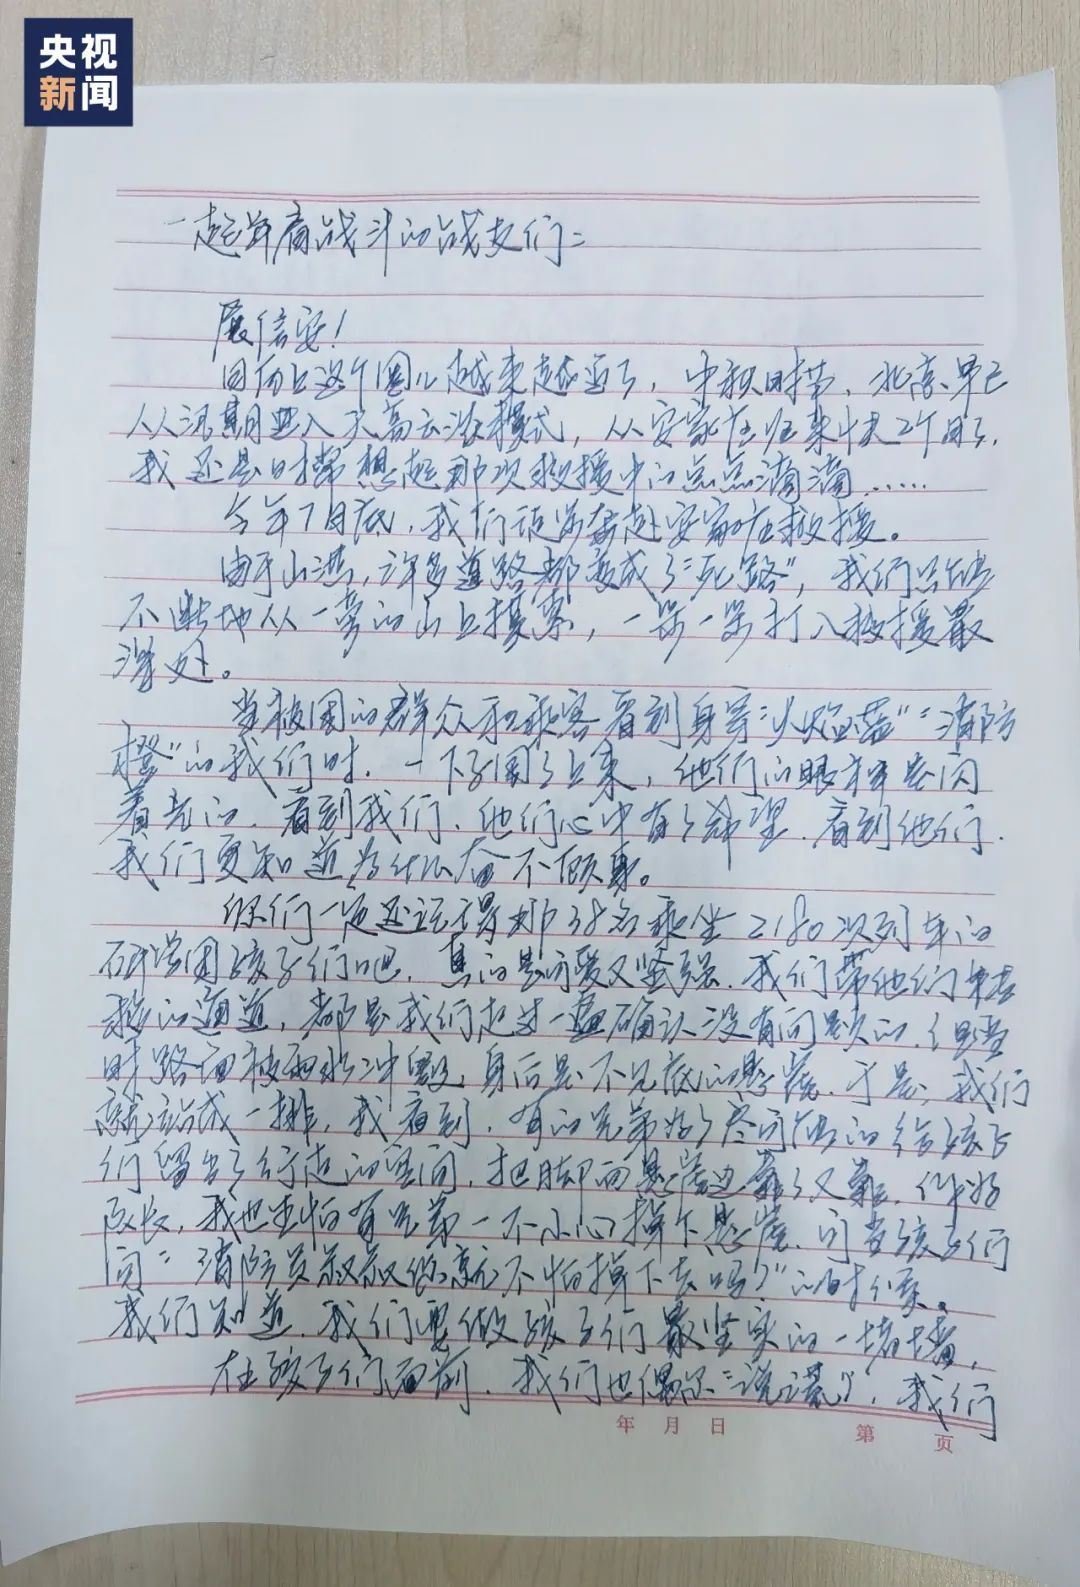 央视
新闻
一起并肩战斗的战友们:
展信安!
日历上这个圈儿越来越近了,中秋时节,北京早已
从汛期进入天高云淡模式,从安家庄归来快2个月了,
我还是时常想起那次救援中的点点滴滴……
今年7月底,我们连夜奔赴安家庄救援。
由于山洪,许多道路都变成了"死路",我们只能
不断地从一旁的山上摸索,一步一步打入救援最
深处。
当被困的群众和乘客看到身穿"火焰蓝""消防
橙"的我们时,一下子围了上来,他们的眼神是闪
着光的,看到我们,他们心中有了希望,看到他们,
我们更知道为什么奋不顾身。
你们一定还记得那38名乘坐Z180次列车的
研学团孩子们吧,真的是可爱又坚强,我们带他们
的通道,都是我们走过一遍确认没有问题的,但当
时路面被雨水冲毁,身后是不见底的悬崖,于是,我们
就站成一排,我看到,有的兄弟为了尽可能的给孩子
们留出了行走的空间,把脚向悬崖边靠了又靠,作为
队长,我也生怕有兄弟一不小心掉下悬崖,可当孩子们
问:"消防员叔叔你就不怕掉下去吗?"的时候,
我们知道,我们要做孩子们最坚实的一堵墙,
在孩子们面前,我们也偶尔"说谎",我们
年 月 日 第 页